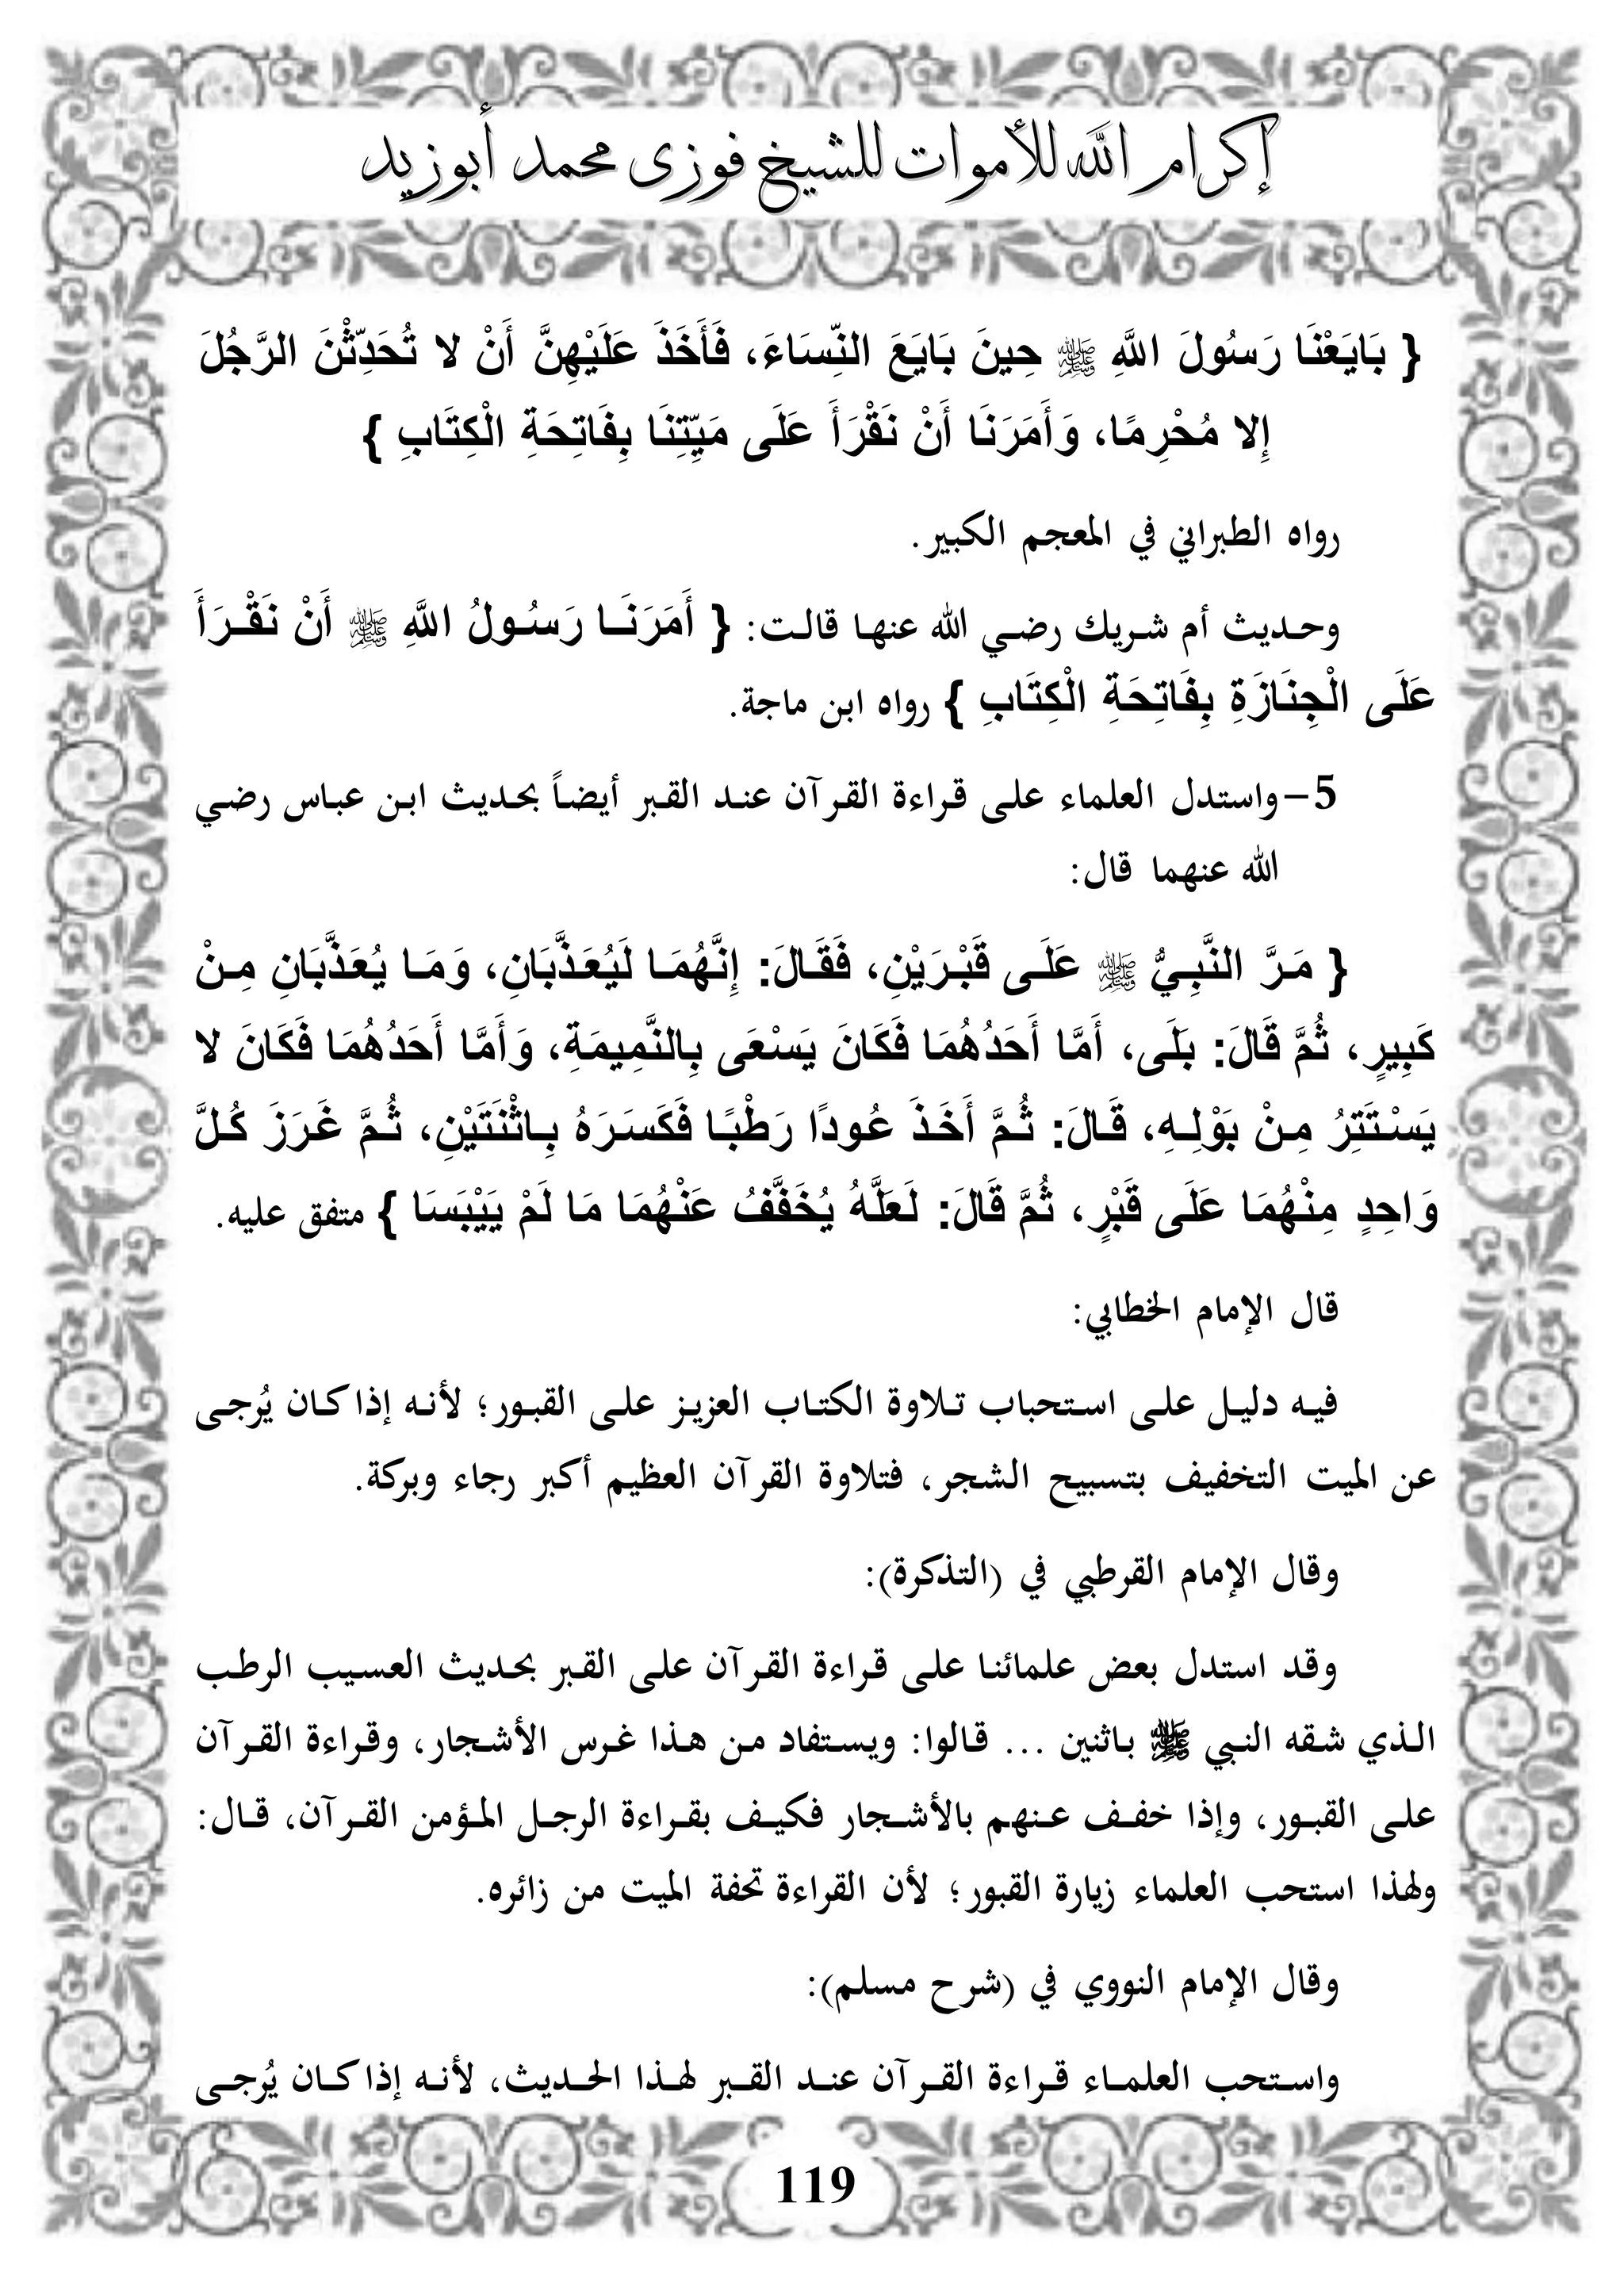 إكرام الله للأموات للشيخ فوزى محمد أبوزيد
{ بَايَعْنَا رَسُولَ اللَّهِ ﷺ حِينَ بَايَعَ النِّسَاءَ، فَأَخَذَ عَلَيْهِنَّ أَنْ لا تُحَدِّثْنَ الرَّجُلَ
إِلا مُحْرِمًا، وَأَمَرَنَا أَنْ نَقْرَأَ عَلَى مَيِّتِنَا بِفَاتِحَةِ الْكِتَابِ }
رواه الطبراني في المعجم الكبير.
وحديث أم شريك رضي الله عنها قالت: { أَمَرَنَا رَسُولُ اللَّهِ ﷺ أَنْ نَقْرَأَ
عَلَى الْجِنَازَةِ بِفَاتِحَةِ الْكِتَابِ } رواه ابن ماجة.
5- واستدل العلماء على قراءة القرآن عند القبر أيضاً بحديث ابن عباس رضي
الله عنهما قال:
{ مَرَّ النَّبِيُّ ﷺ عَلَى قَبْرَيْنِ، فَقَالَ: إِنَّهُمَا لَيُعَذَّبَانِ، وَمَا يُعَذَّبَانِ مِنْ
كَبِيرٍ، ثُمَّ قَالَ: بَلَى، أَمَّا أَحَدُهُمَا فَكَانَ يَسْعَى بِالنَّمِيمَةِ، وَأَمَّا أَحَدُهُمَا فَكَانَ لا
يَسْتَتِرُ مِنْ بَوْلِهِ، قَالَ: ثُمَّ أَخَذَ عُودًا رَطْبًا فَكَسَرَهُ بِاثْنَتَيْنِ، ثُمَّ غَرَزَ كُلَّ
وَاحِدٍ مِنْهُمَا عَلَى قَبْرٍ، ثُمَّ قَالَ: لَعَلَّهُ يُخَفَّفُ عَنْهُمَا مَا لَمْ يَيْبَسَا } متفق عليه.
قال الإمام الخطابي:
فيه دليل على استحباب تلاوة الكتاب العزيز على القبور؛ لأنه إذا كان يُرجى
عن الميت التخفيف بتسبيح الشجر، فتلاوة القرآن العظيم أكبر رجاء وبركة.
وقال الإمام القرطبي في (التذكرة):
وقد استدل بعض علمائنا على قراءة القرآن على القبر بحديث العسيب الرطب
الذي شقه النبي ﷺ باثنين ... قالوا: ويستفاد من هذا غرس الأشجار، وقراءة القرآن
على القبور، وإذا خفف عنهم بالأشجار فكيف بقراءة الرجل المؤمن القرآن، قال:
ولهذا استحب العلماء زيارة القبور؛ لأن القراءة تحفة الميت من زائره.
وقال الإمام النووي في (شرح مسلم):
واستحب العلماء قراءة القرآن عند القبر لهذا الحديث، لأنه إذا كان يُرجى
119